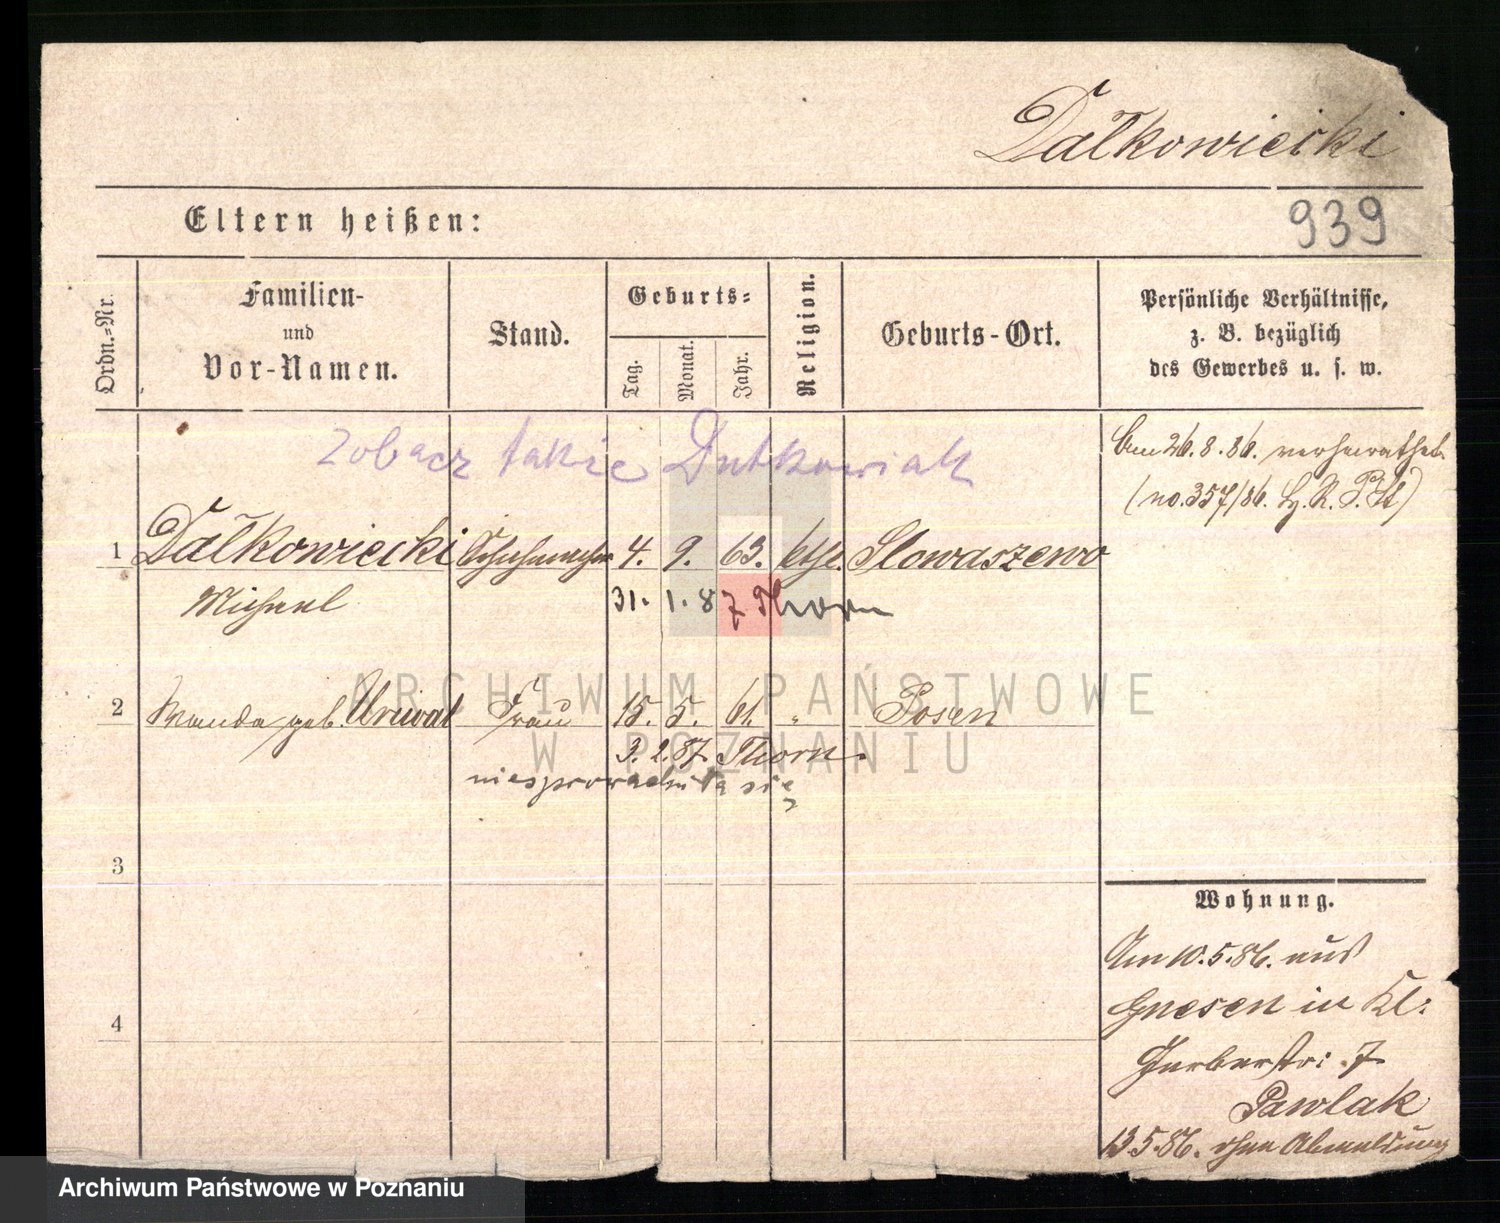 Dałkowiecki
939
Eltern heißen:
Ordn.-Nr.
Familien-
und
Vor-Namen.
Stand.
Geburts-
Tag.
Monat.
Jahr.
Religion.
Geburts-Ort.
Persönliche Verhältnisse,
z. B. bezüglich
des Gewerbes u. s. w.
zobacz takie Dutkowiak
Am 26.8.86. verheirathet
(no. 357/86.
1 Dałkowiecki Schuhmacher 4. 9. 63. kth. Slowaszewo
Michael 31. 1. 87 Thorn
2 Wanda geb. Frau 15. 5. 61. " Posen
3. 2. 87. Thorn.
niesprowadziła się
3
4
Wohnung.
Am 10.5.86. aus
Gnesen in Kl:
Gerberstr: 7
Pawlak
13.5.86. ohne Abmeldung
ARCHIWUM PAŃSTWOWE
W POZNANIU
Archiwum Państwowe w Poznaniu